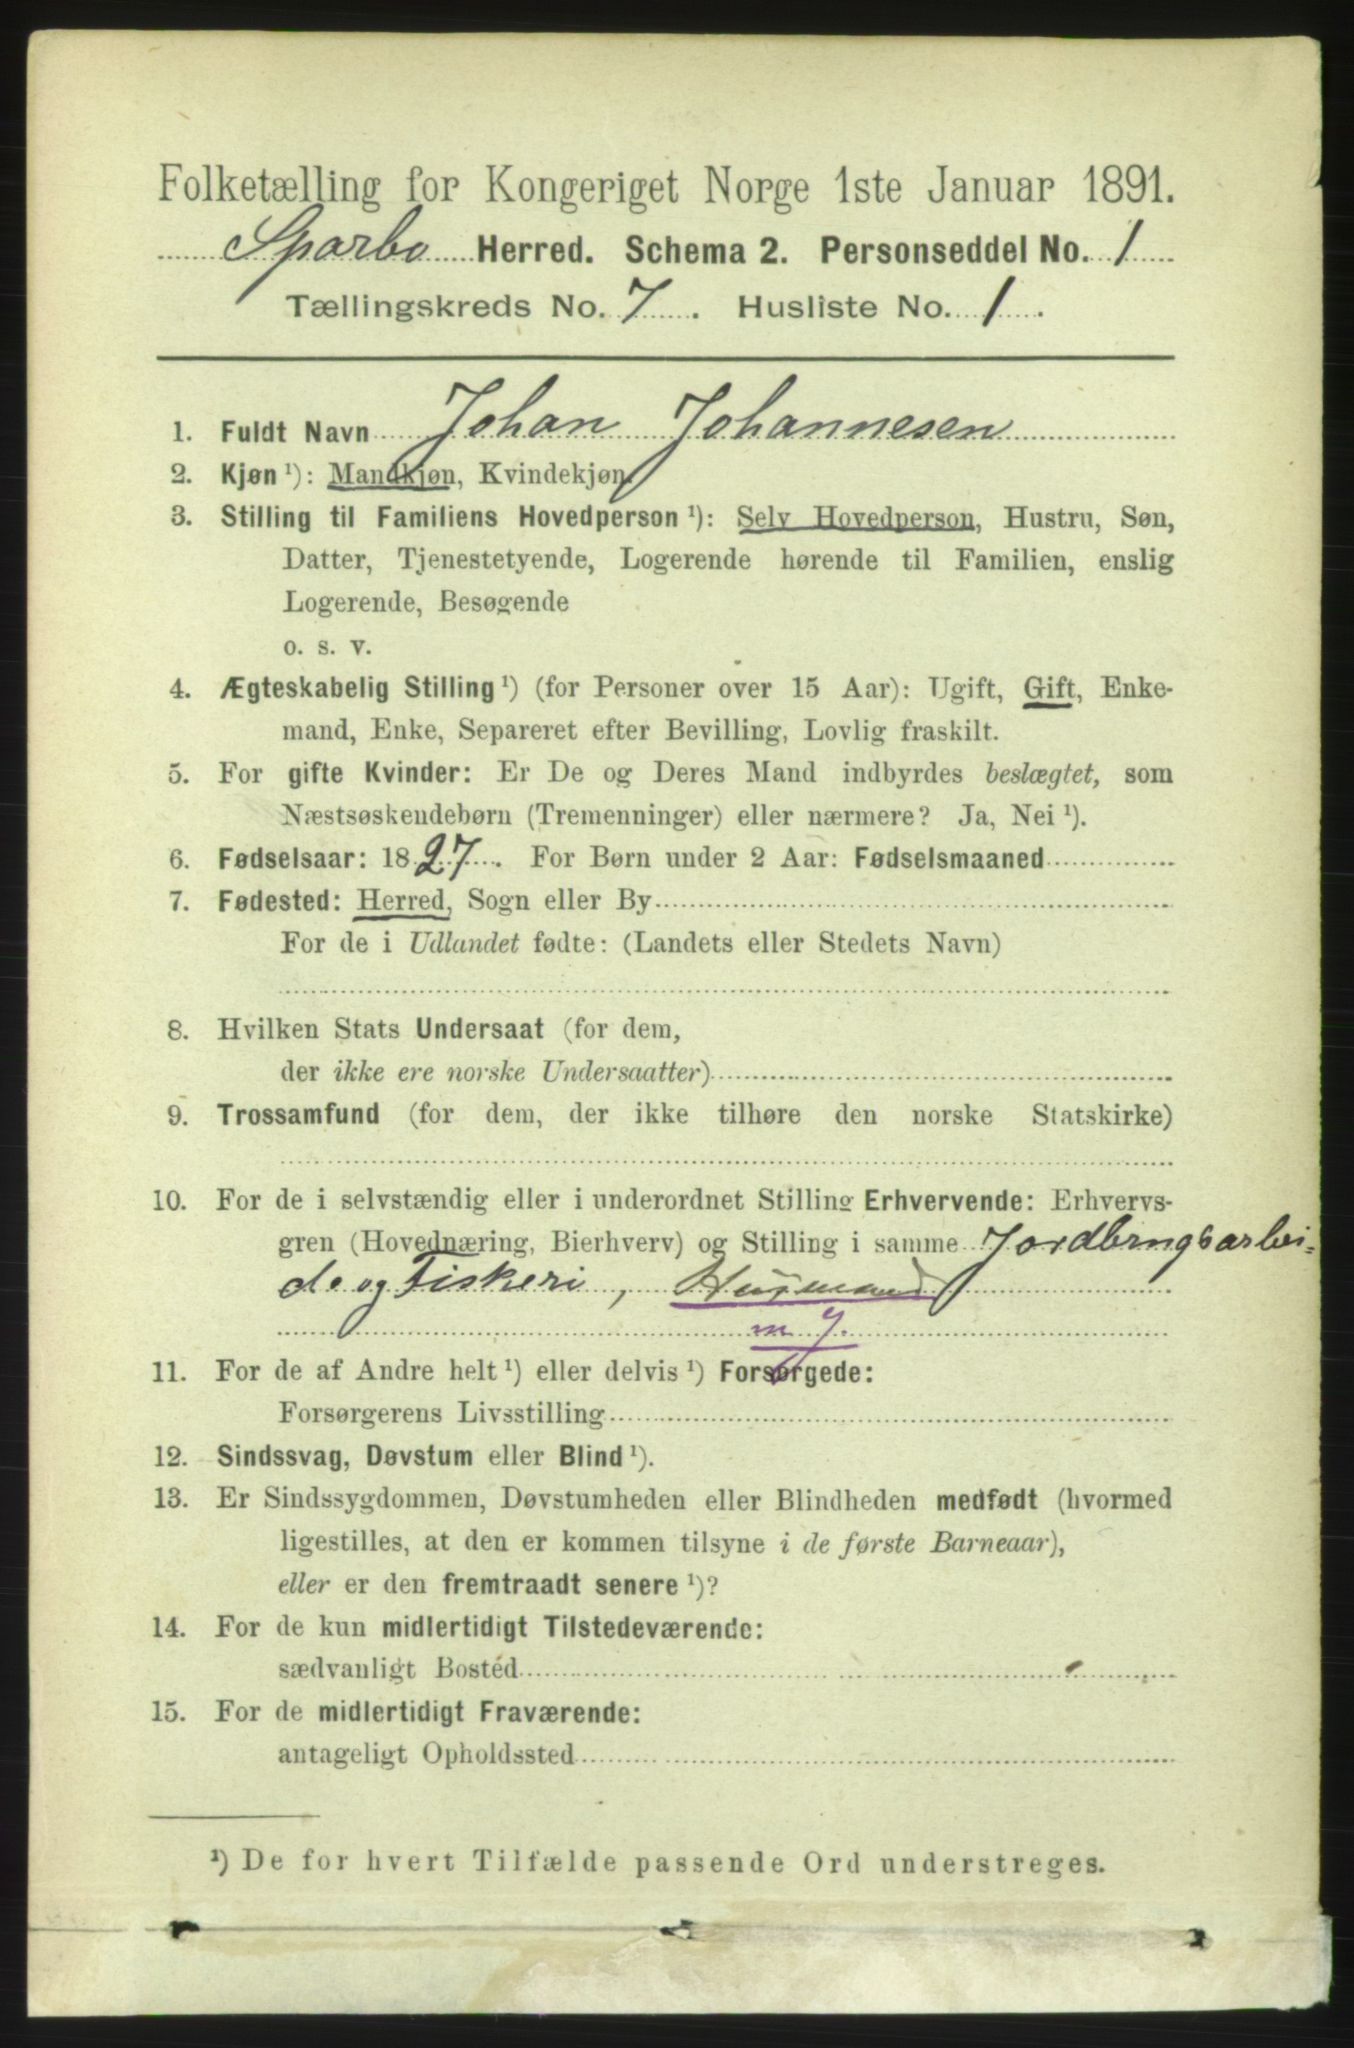 Folketælling for Kongeriget Norge 1ste Januar 1891.
Sparbo Herred. Schema 2. Personseddel No. 1
Tællingskreds No. 7. Husliste No. 1.
1. Fuldt Navn Johan Johannesen
2. Kjøn ¹): Mandkjøn, Kvindekjøn.
3. Stilling til Familiens Hovedperson ¹): Selv Hovedperson, Hustru, Søn,
Datter, Tjenestetyende, Logerende hørende til Familien, enslig
Logerende, Besøgende
o. s. v.
4. Ægteskabelig Stilling ¹) (for Personer over 15 Aar): Ugift, Gift, Enke-
mand, Enke, Separeret efter Bevilling, Lovlig fraskilt.
5. For gifte Kvinder: Er De og Deres Mand indbyrdes beslægtet, som
Næstsøskendebørn (Tremenninger) eller nærmere? Ja, Nei ¹).
6. Fødselsaar: 1827. For Børn under 2 Aar: Fødselsmaaned
7. Fødested: Herred, Sogn eller By
For de i Udlandet fødte: (Landets eller Stedets Navn)
8. Hvilken Stats Undersaat (for dem,
der ikke ere norske Undersaatter)
9. Trossamfund (for dem, der ikke tilhøre den norske Statskirke)
10. For de i selvstændig eller i underordnet Stilling Erhvervende: Erhvervs-
gren (Hovednæring, Bierhverv) og Stilling i samme Jordbrugsarbei=
de og Fiskeri, Husmand
m J.
11. For de af Andre helt ¹) eller delvis ¹) Forsørgede:
Forsørgerens Livsstilling
12. Sindssvag, Døvstum eller Blind ¹).
13. Er Sindssygdommen, Døvstumheden eller Blindheden medfødt (hvormed
ligestilles, at den er kommen tilsyne i de første Barneaar),
eller er den fremtraadt senere ¹)?
14. For de kun midlertidigt Tilstedeværende:
sædvanligt Bosted
15. For de midlertidigt Fraværende:
antageligt Opholdssted
¹) De for hvert Tilfælde passende Ord understreges.